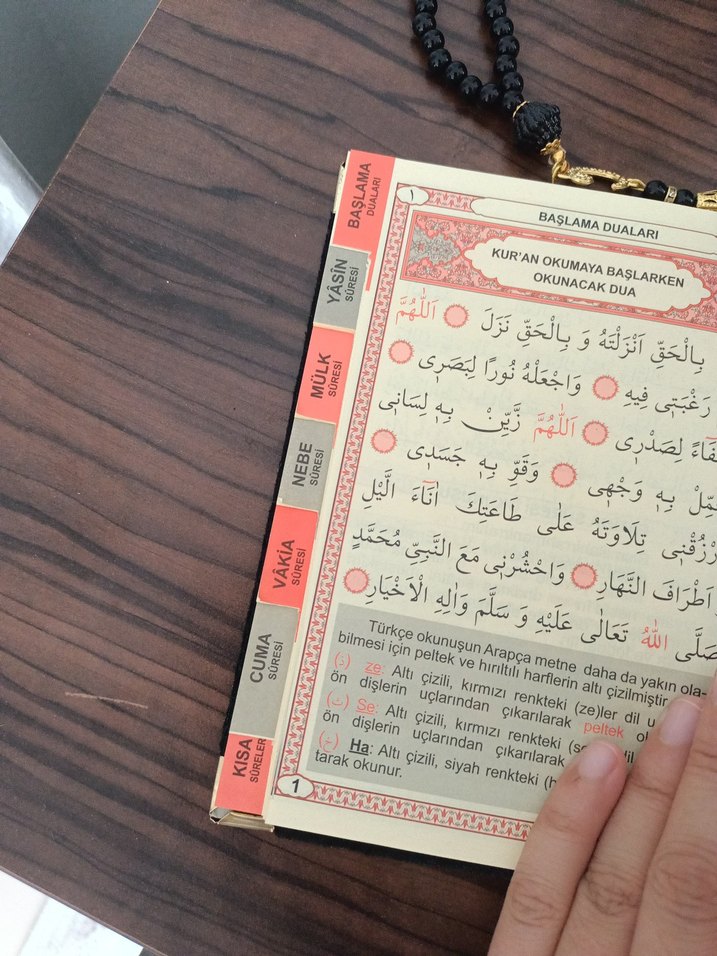 BAŞLAMA
DUALARI
YÂSÎN
SÛRESİ
MÜLK
SÛRESİ
NEBE
SÛRESİ
VÂKIA
SÛRESİ
CUMA
SÛRESİ
KISA
SÛRELER
١
BAŞLAMA DUALARI
KUR'AN OKUMAYA BAŞLARKEN
OKUNACAK DUA
بِالْحَقِّ اَنْزَلْتَهُ وَ بِالْحَقِّ نَزَلَ اَللّٰهُمَّ
رَغْبَتٖى فٖيهِ وَاجْعَلْهُ نُورًا لِبَصَرٖى
لِصَدْرٖى اَللّٰهُمَّ زَيِّنْ بِهٖ لِسَانٖى
بِهٖ وَجْهٖى وَقَوِّ بِهٖ جَسَدٖى
تِلَاوَتَهُ عَلٰى طَاعَتِكَ اٰنَٓاءَ الَّيْلِ
اَطْرَافَ النَّهَارِ وَاحْشُرْنٖى مَعَ النَّبِيِّ مُحَمَّدٍ
صَلَّى اللّٰهُ تَعَالٰى عَلَيْهِ وَ سَلَّمَ وَاٰلِهِ الْاَخْيَارِ
Türkçe okunuşun Arapça metne daha da yakın ola-
bilmesi için peltek ve hırıltılı harflerin altı çizilmiştir
(ذ) ze: Altı çizili, kırmızı renkteki (ze)ler dil u
ön dişlerin uçlarından çıkarılarak peltek
(ث) Se: Altı çizili, kırmızı renkteki
ön dişlerin uçlarından çıkarılarak
(خ) Ha: Altı çizili, siyah renkteki
tarak okunur.
1